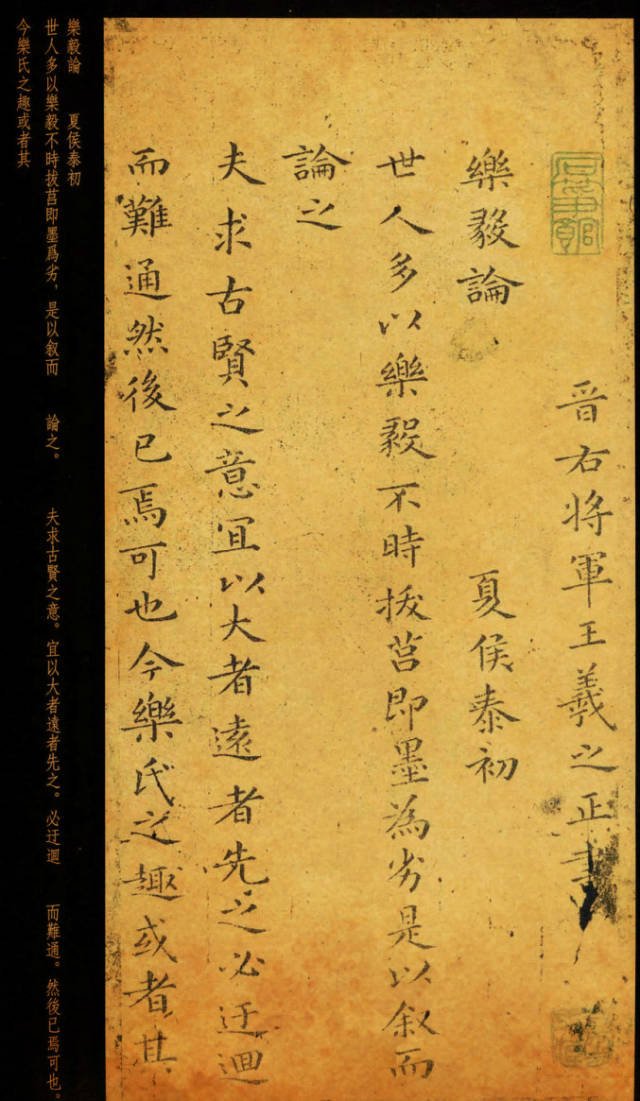 晉右將軍王羲之正書
樂毅論 夏侯泰初
世人多以樂毅不時拔莒即墨為劣是以叙而
論之
夫求古賢之意宜以大者遠者先之必迂迴
而難通然後已焉可也今樂氏之趣或者其
樂毅論 夏侯泰初
世人多以樂毅不時拔莒即墨爲劣,是以叙而 論之。 夫求古賢之意。宜以大者遠者先之。必迂迴 而難通。然後已焉可也。
今樂氏之趣或者其